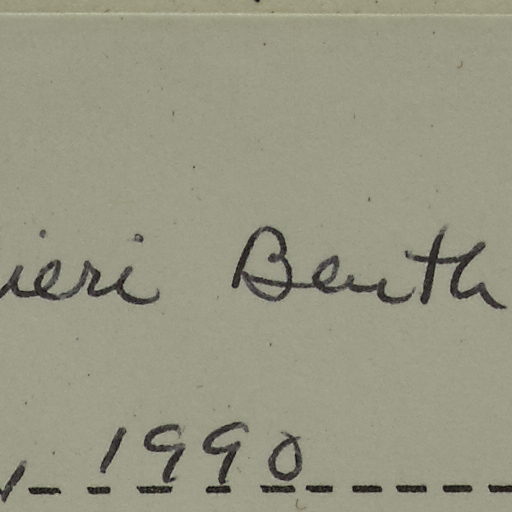 ieri Benth
1990